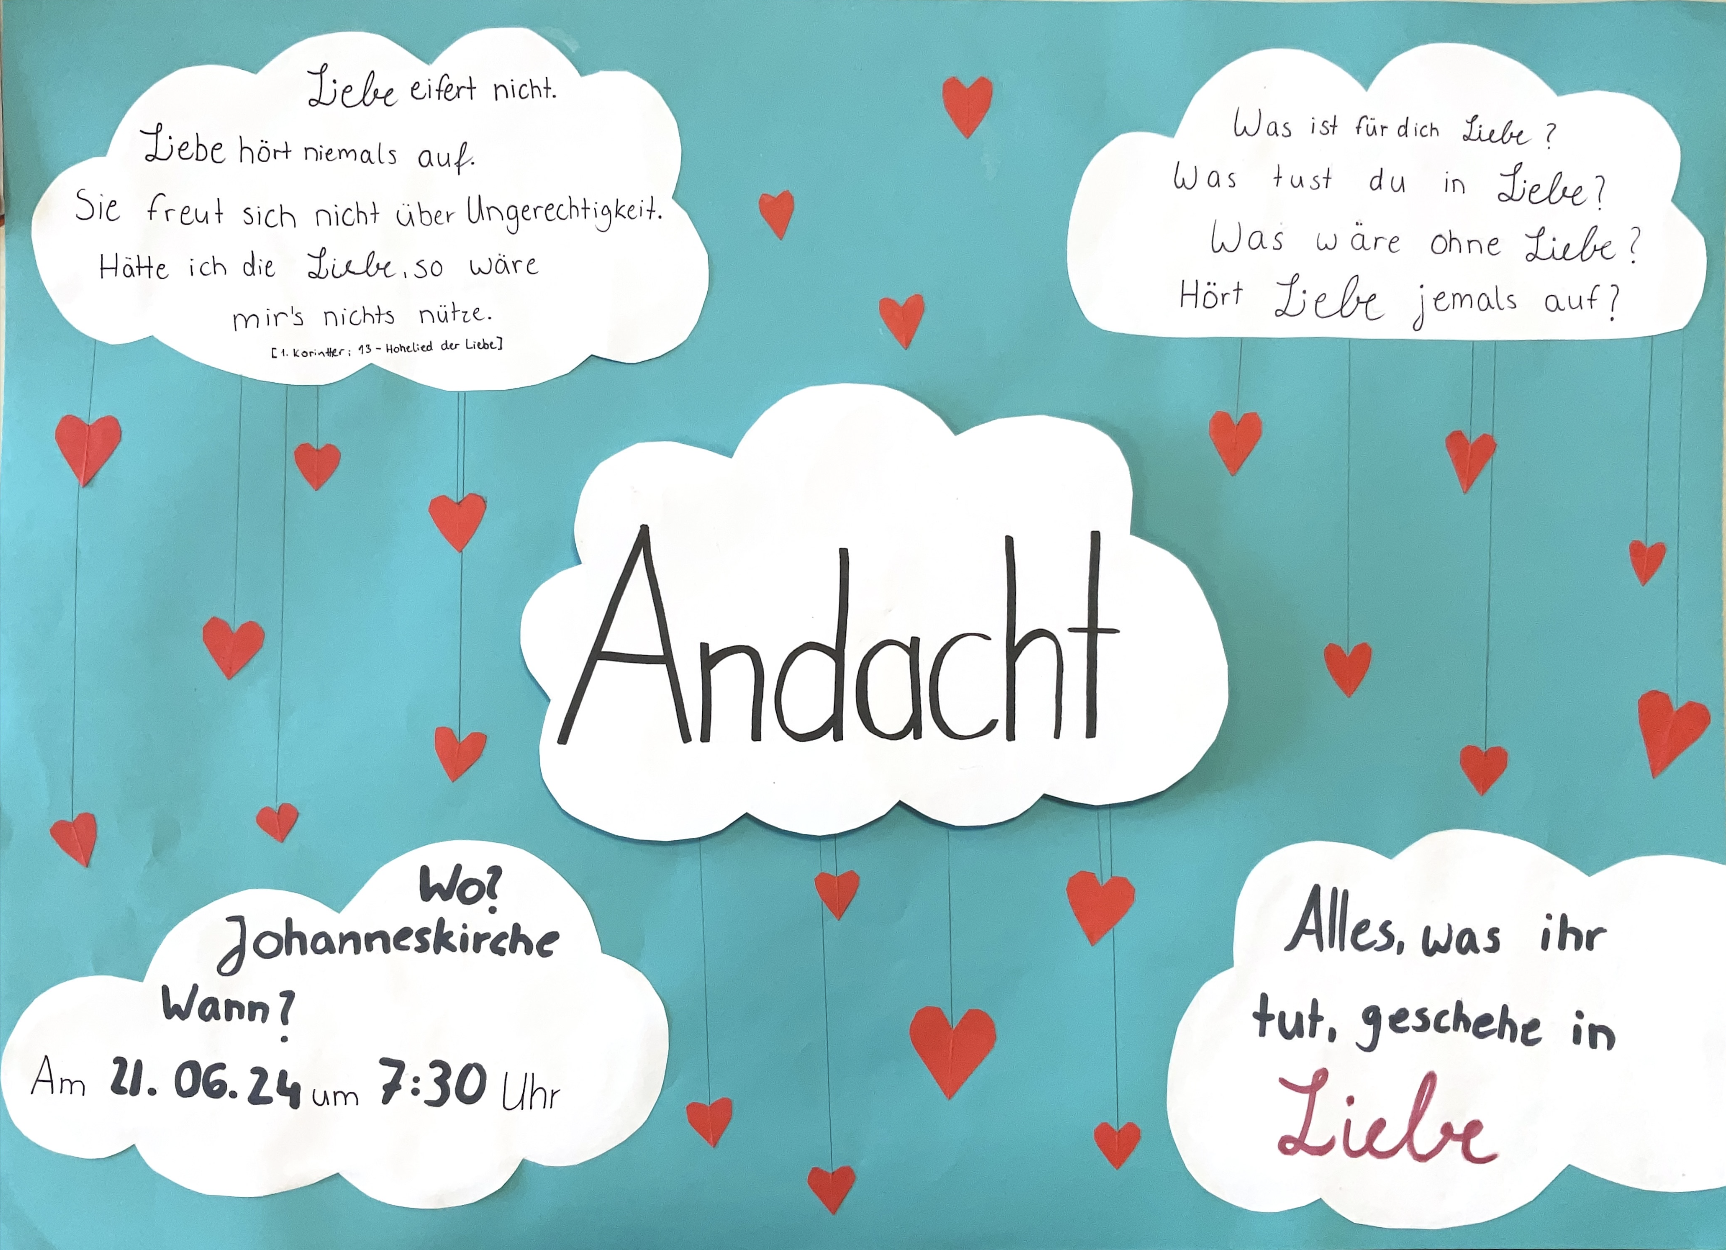 Liebe eifert nicht.
Liebe hört niemals auf.
Sie freut sich nicht über Ungerechtigkeit.
Hätte ich die Liebe, so wäre
mir's nichts nütze.
[1. Korinther: 13 - Hohelied der Liebe]
Was ist für dich Liebe?
Was tust du in Liebe?
Was wäre ohne Liebe?
Hört Liebe jemals auf?
Andacht
Wo?
Johanneskirche
Wann?
Am 21.06.24 um 7:30 Uhr
Alles, was ihr
tut, geschehe in
Liebe